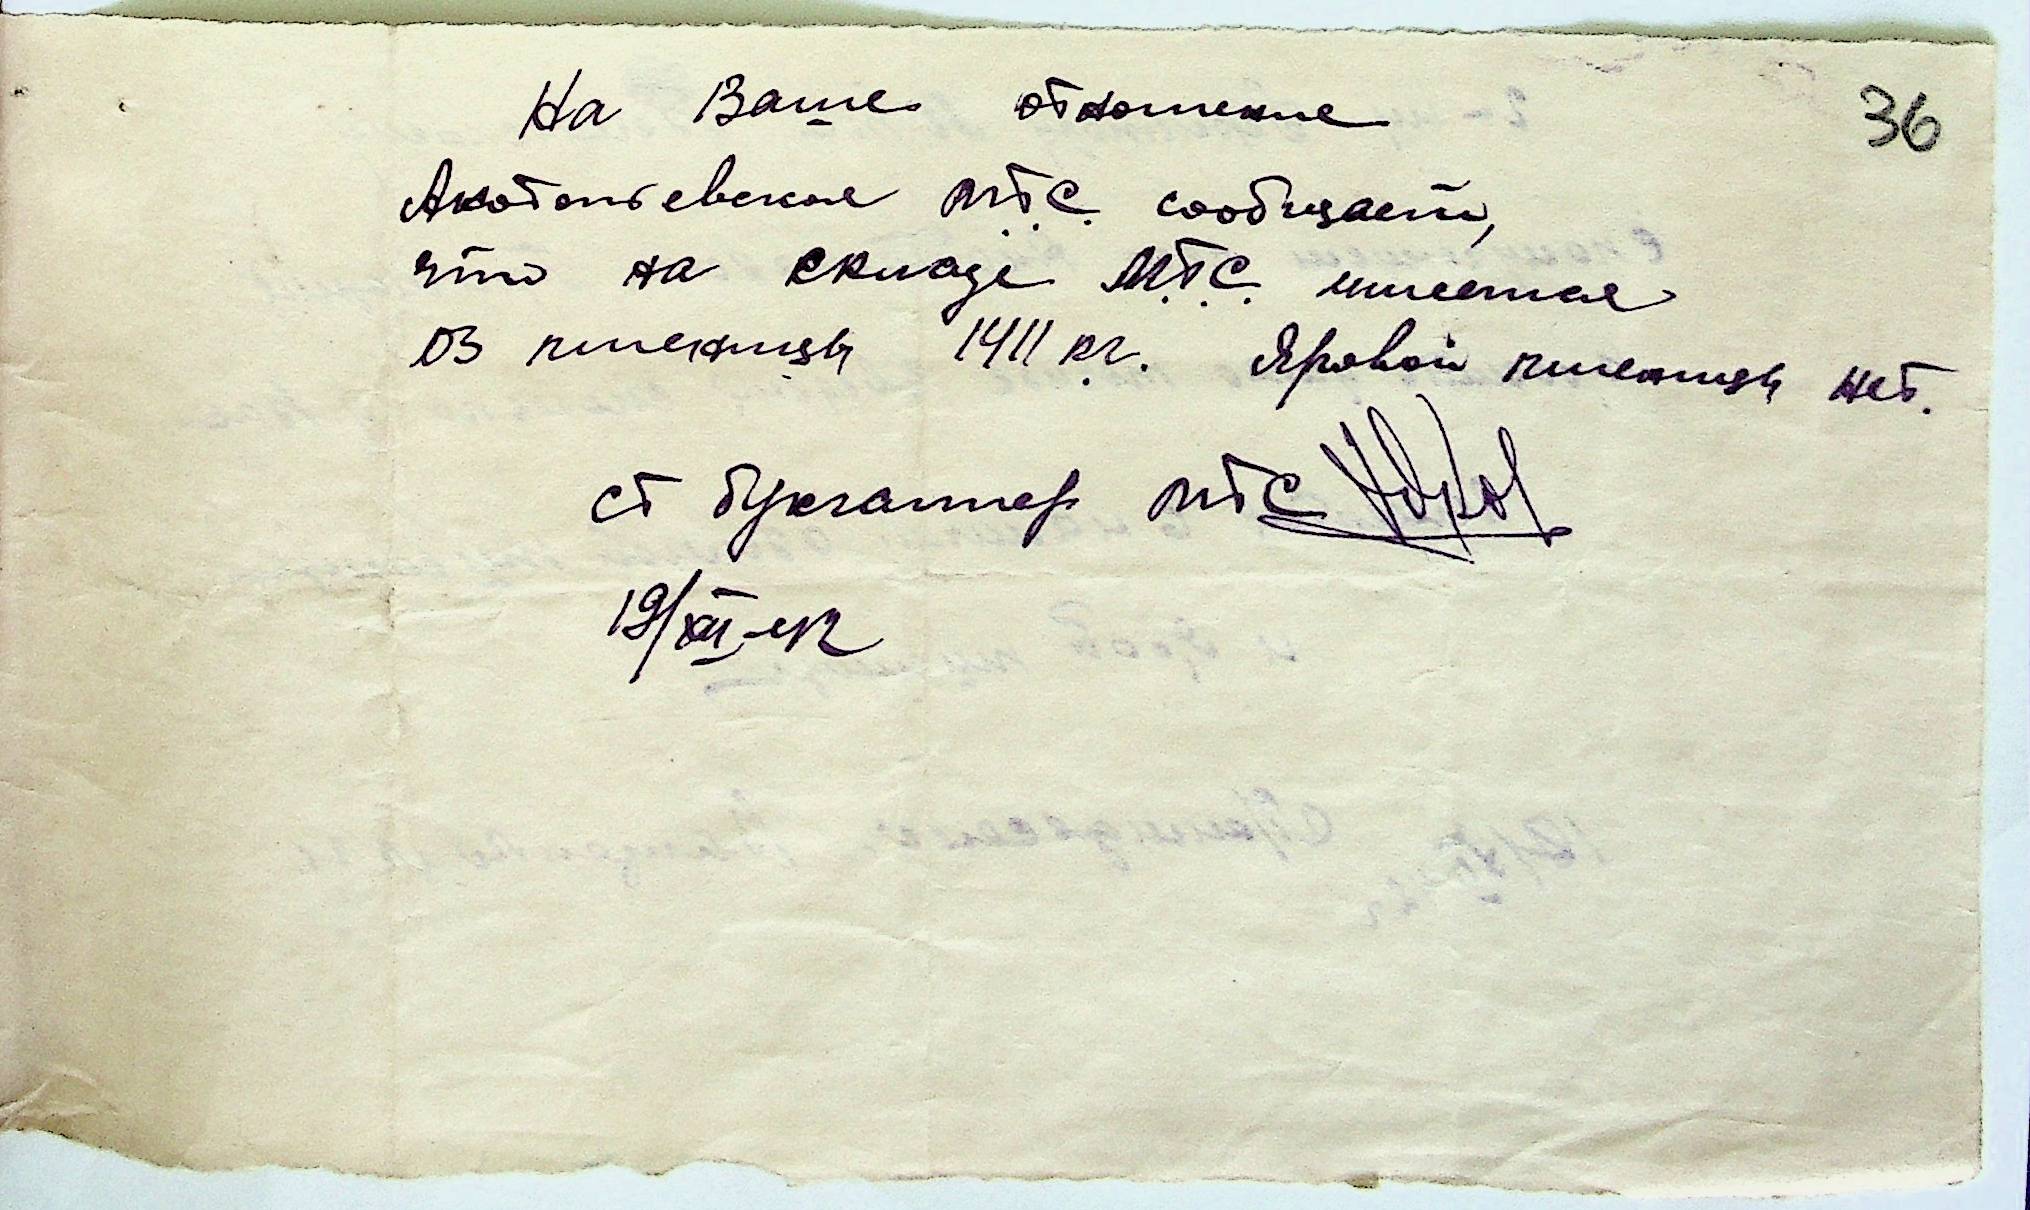 36
На Ваше отношение
Анатольевская МТС сообщает,
что на складе М.Т.С. имеется
оз пшеницы 1411 кг. Яровой пшеницы нет.
ст бухгалтер МТС
19/XII-42